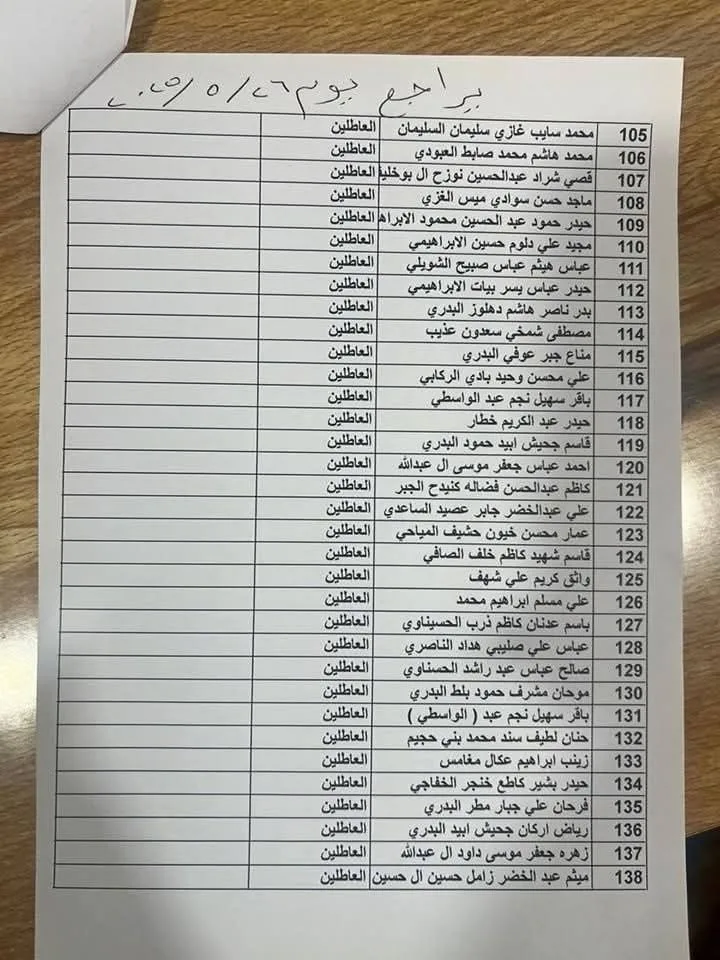 يراجع يوم ٢٦ / ٥ / ٢٠٢٥
105 محمد سايب غازي سليمان السليمان العاطلين
106 محمد هاشم محمد صابط العبودي العاطلين
107 قصي شراد عبدالحسين نوزح ال بوخليف العاطلين
108 ماجد حسن سوادي ميس الغزي العاطلين
109 حيدر حمود عبد الحسين محمود الابراه العاطلين
110 مجيد علي دلوم حسين الابراهيمي العاطلين
111 عباس هيثم عباس صبيح الشويلي العاطلين
112 حيدر عباس يسر بيات الابراهيمي العاطلين
113 بدر ناصر هاشم دهلوز البدري العاطلين
114 مصطفى شمخي سعدون عذيب العاطلين
115 مناع جبر عوفي البدري العاطلين
116 علي محسن وحيد بادي الركابي العاطلين
117 باقر سهيل نجم عبد الواسطي العاطلين
118 حيدر عبد الكريم خطار العاطلين
119 قاسم جحيش ابيد حمود البدري العاطلين
120 احمد عباس جعفر موسى ال عبدالله العاطلين
121 كاظم عبدالحسن فضاله كنيدح الجبر العاطلين
122 علي عبدالخضر جابر عصيد الساعدي العاطلين
123 عمار محسن خيون حشيف المياحي العاطلين
124 قاسم شهيد كاظم خلف الصافي العاطلين
125 واثق كريم علي شهف العاطلين
126 علي مسلم ابراهيم محمد العاطلين
127 باسم عدنان كاظم ذرب الحسيناوي العاطلين
128 عباس علي صليبي هداد الناصري العاطلين
129 صالح عباس عبد راشد الحسناوي العاطلين
130 موحان مشرف حمود بلط البدري العاطلين
131 باقر سهيل نجم عبد ( الواسطي ) العاطلين
132 حنان لطيف سند محمد بني حجيم العاطلين
133 زينب ابراهيم عكال مغامس العاطلين
134 حيدر بشير كاطع خنجر الخفاجي العاطلين
135 فرحان علي جبار مطر البدري العاطلين
136 رياض اركان جحيش ابيد البدري العاطلين
137 زهره جعفر موسى داود ال عبدالله العاطلين
138 ميثم عبد الخضر زامل حسين ال حسين العاطلين